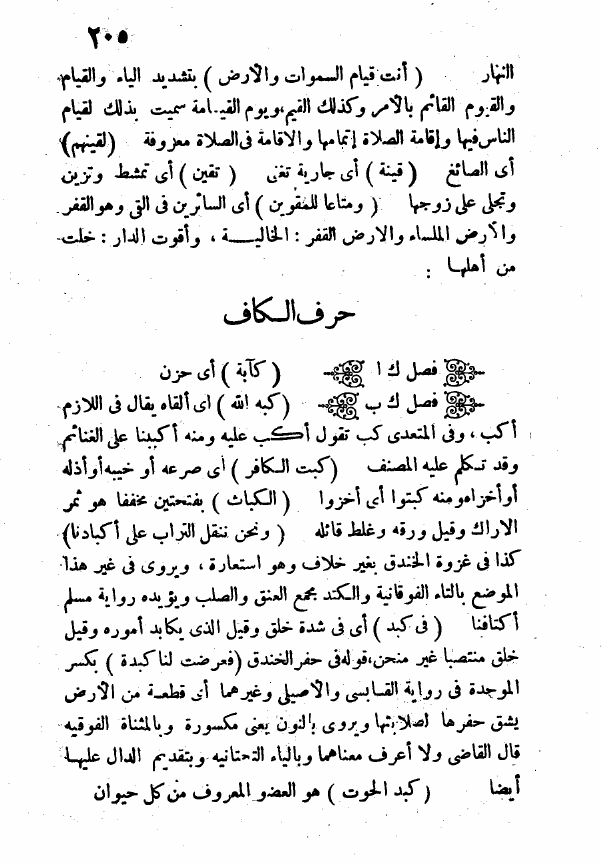 ٢٠٥
النهار ( أنت قيام السموات والأرض ) بتشديد الياء والقيام
والقيوم القائم بالأمر وكذلك القيم،ويوم القيـامة سميت بذلك لقيام
الناس فيها وإقامة الصلاة إتمامها والاقامة فى الصلاة معروفة (لقينهم)
أى الصائغ (قينة) أى جارية تغنى ( تقين ) أى تمشط وتزين
وتجلى على زوجها ( ومتاعا للمقوين ) أى السائرين فى التى وهو القفر
والأرض الملساء والارض القفر : الخاليـــة ، وأقوت الدار : خلت
من أهلهـا :
حرف الـكاف
فصل ك ا ( كآبة ) أى حزن
فصل ك ب (كبه الله ) اى ألقاه يقال فى اللازم
أكب، وفى المتعدى كب تقول أكـب عليه ومنه أكببنا على الغنائم
وقد تـكلم عليه المصنف (كبت الـكافر ) أى صرعه أو خيبه أو أذله
أو أخزاه ومنه كبتوا أى أخزوا ( الـكباث ) بفتحتين مخففا هو ثمر
الاراك وقيل ورقه وغلط قائله ( ونحن ننقل التراب على أكبادنا)
كذا فى غزوة الخندق بغير خلاف وهو استعارة ، ويروى فى غير هذا
الموضع بالتاء الفوقانية والـكتد مجمع العنق والصلب ويؤيده رواية مسلم
أكتافنا ( فى كبد ) أى فى شدة خلق وقيل الذى يكابد أموره وقيل
خلق منتصبا غير منحن،قوله فى حفر الخندق (فعرضت لنا كبدة ) بكسر
الموجدة فى رواية القـابسى والأصيلى وغيرهما أى قطعـة من الأرض
يشق حفرها اصلابتها ويروى بالنون يعنى مكسورة وبالمثناة الفوقيه
قال القاضى ولا أعرف معناهما وبالياء التحتانيه وبتقديم الدال عليهـا
أيضا ( كبد الحوت ) هو العضو المعروف من كل حيوان